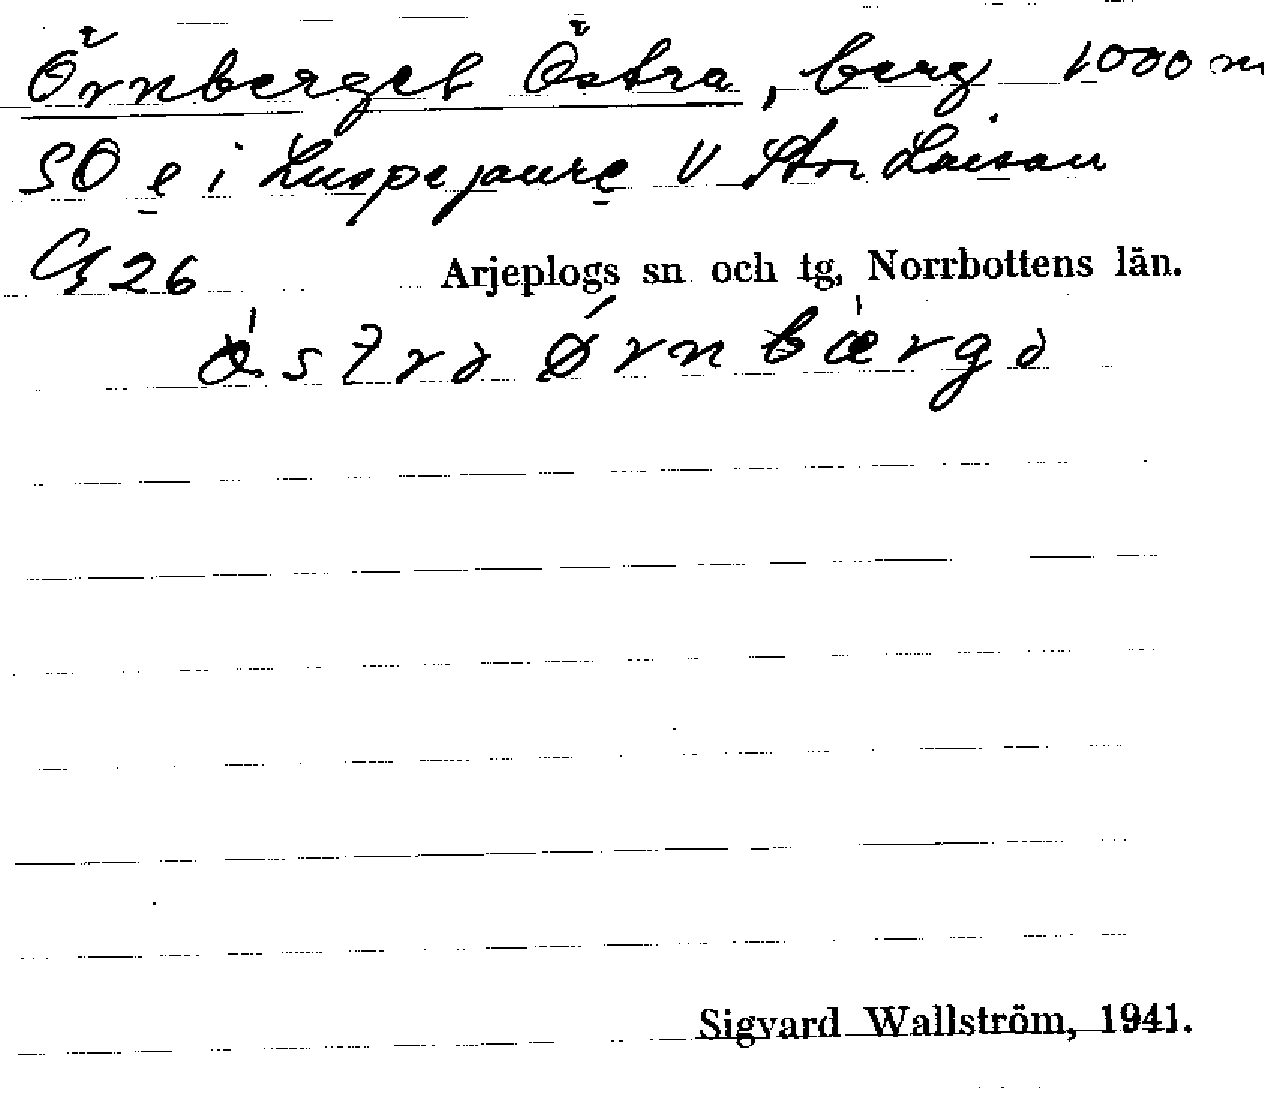 Örnberget Östra, berg 1000 m
SO e i Luspejaure V Stor Laisan
26 Arjeplogs sn och tg, Norrbottens län.
östrə ørnbærgə
Sigvard Wallström, 1941.